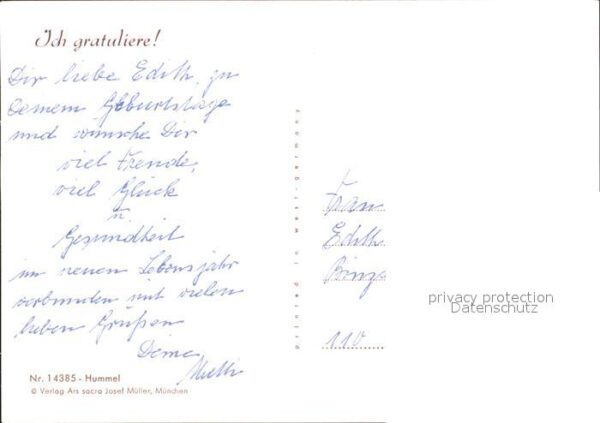 Ich gratuliere!
Dir liebe Edith, zu
Deinem Geburtstage
und wünsche Dir
viel Freude,
viel Glück
u.
Gesundheit
im neuen Lebensjahr
verbunden mit vielen
lieben Grüßen
Deine
Nr. 14385 - Hummel
© Verlag Ars sacra Josef Müller, München
printed in west-germany
Frau
Edith
110
privacy protection
Datenschutz